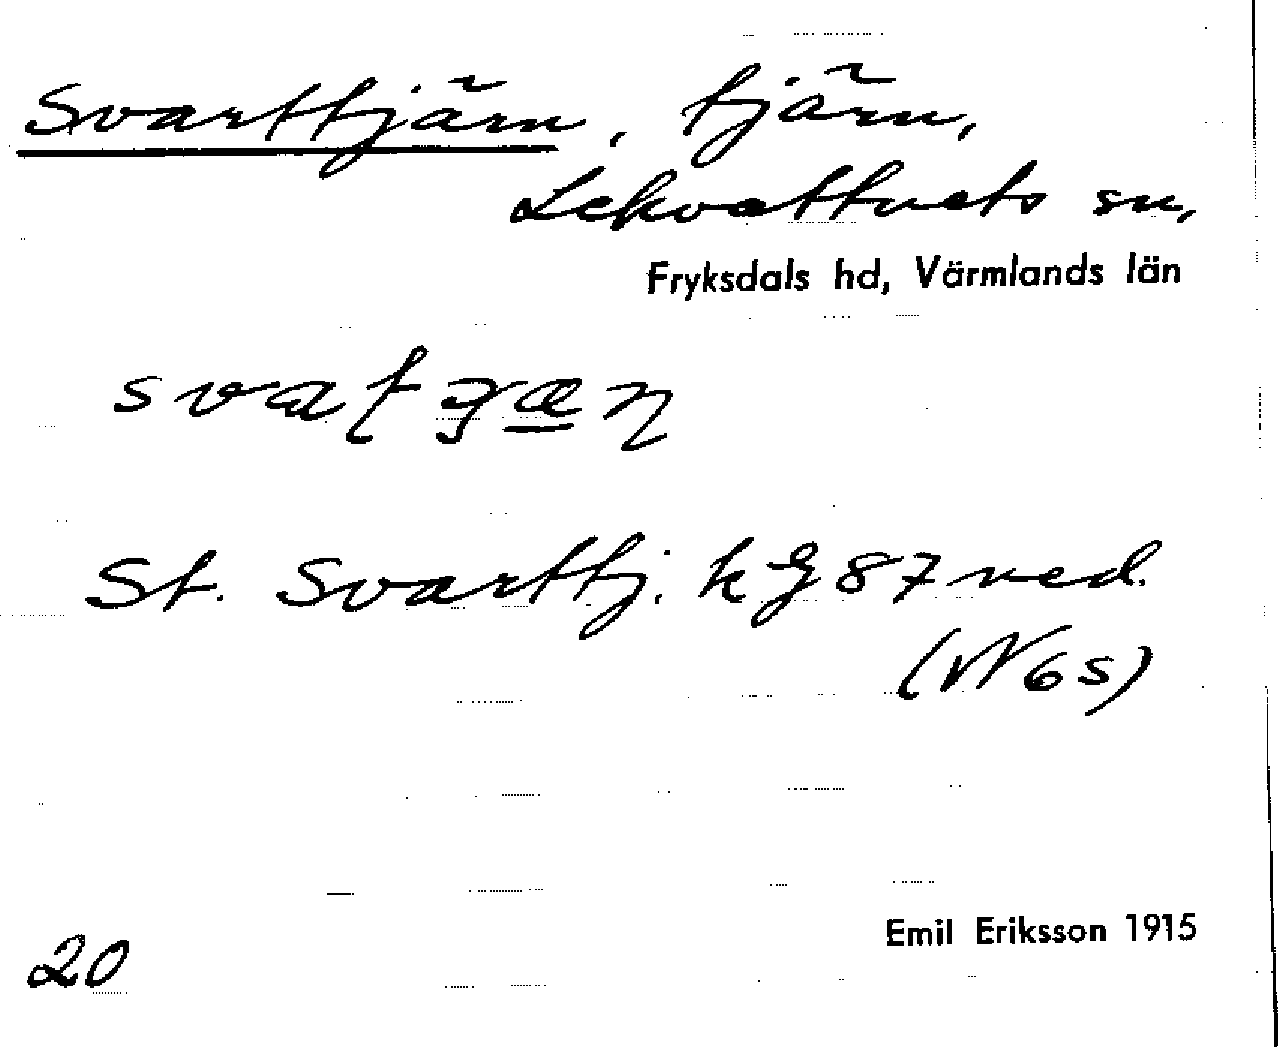 Svarttjärn, tjärn,
Lekvattnets sn,
Fryksdals hd, Värmlands län
St. Svarttj. kg 87 ned.
(W6s)
Emil Eriksson 1915
20